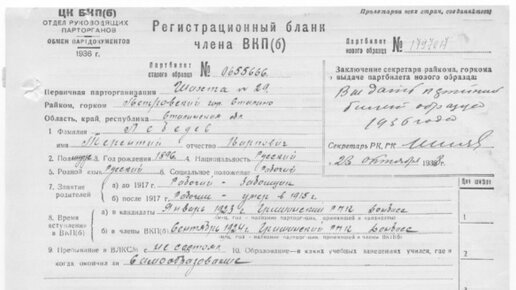 Пролетарии всех стран, соединяйтесь!
ЦК ВКП(б)
ОТДЕЛ РУКОВОДЯЩИХ
ПАРТОРГАНОВ
ОБМЕН ПАРТДОКУМЕНТОВ
1936 г.
Регистрационный бланк
члена ВКП(б)
Партбилет
старого образца № 0655666.
Партбилет
нового образца №
Заключение секретаря райкома, горкома
о выдаче партбилета нового образца:
Выдать партийный
билет образца
1936 года
Секретарь РК, ГК
28 октября
Первичная парторганизация Шахта № 29.
Райком, горком гор. Сталино
Область, край, республика Сталинская обл
1 Фамилия Лебедев
имя Терентий отчество Карпович
2. Пол 3. Год рождения 1896. 4. Национальность Русский
5. Родной язык Русский 6. Социальное положение Рабочий
7. Занятие родителей
а) до 1917 г. Рабочий - забойщик
б) после 1917 г. Рабочий - умер в 1915 г.
8. Время вступления в ВКП(б)
а) в кандидаты Январь 1923 г. Гришинский Донбасс
б) в члены ВКП(б) Сентябрь 1924 г. Гришинский Донбасс
9. Пребывание в ВЛКСМ не состоял 10. Образование — каких учебных заведениях учился, где и
когда окончил Самообразование
1
2